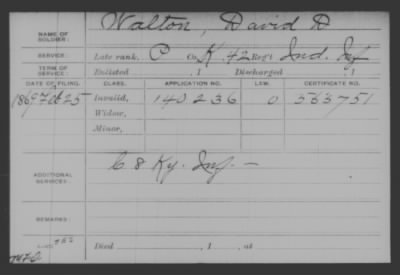 NAME OF SOLDIER: Walton, David D
SERVICE: Late rank, C Co. K, 42 Reg't Ind. Inf
TERM OF SERVICE: Enlisted , 1 Discharged , 1
DATE OF FILING. CLASS. APPLICATION NO. LAW. CERTIFICATE NO.
1869 Feb 25 Invalid, 140236 0 563751
Widow,
Minor,
ADDITIONAL SERVICES: C 8 Ky. Inf. —
REMARKS:
Died , 1 , at